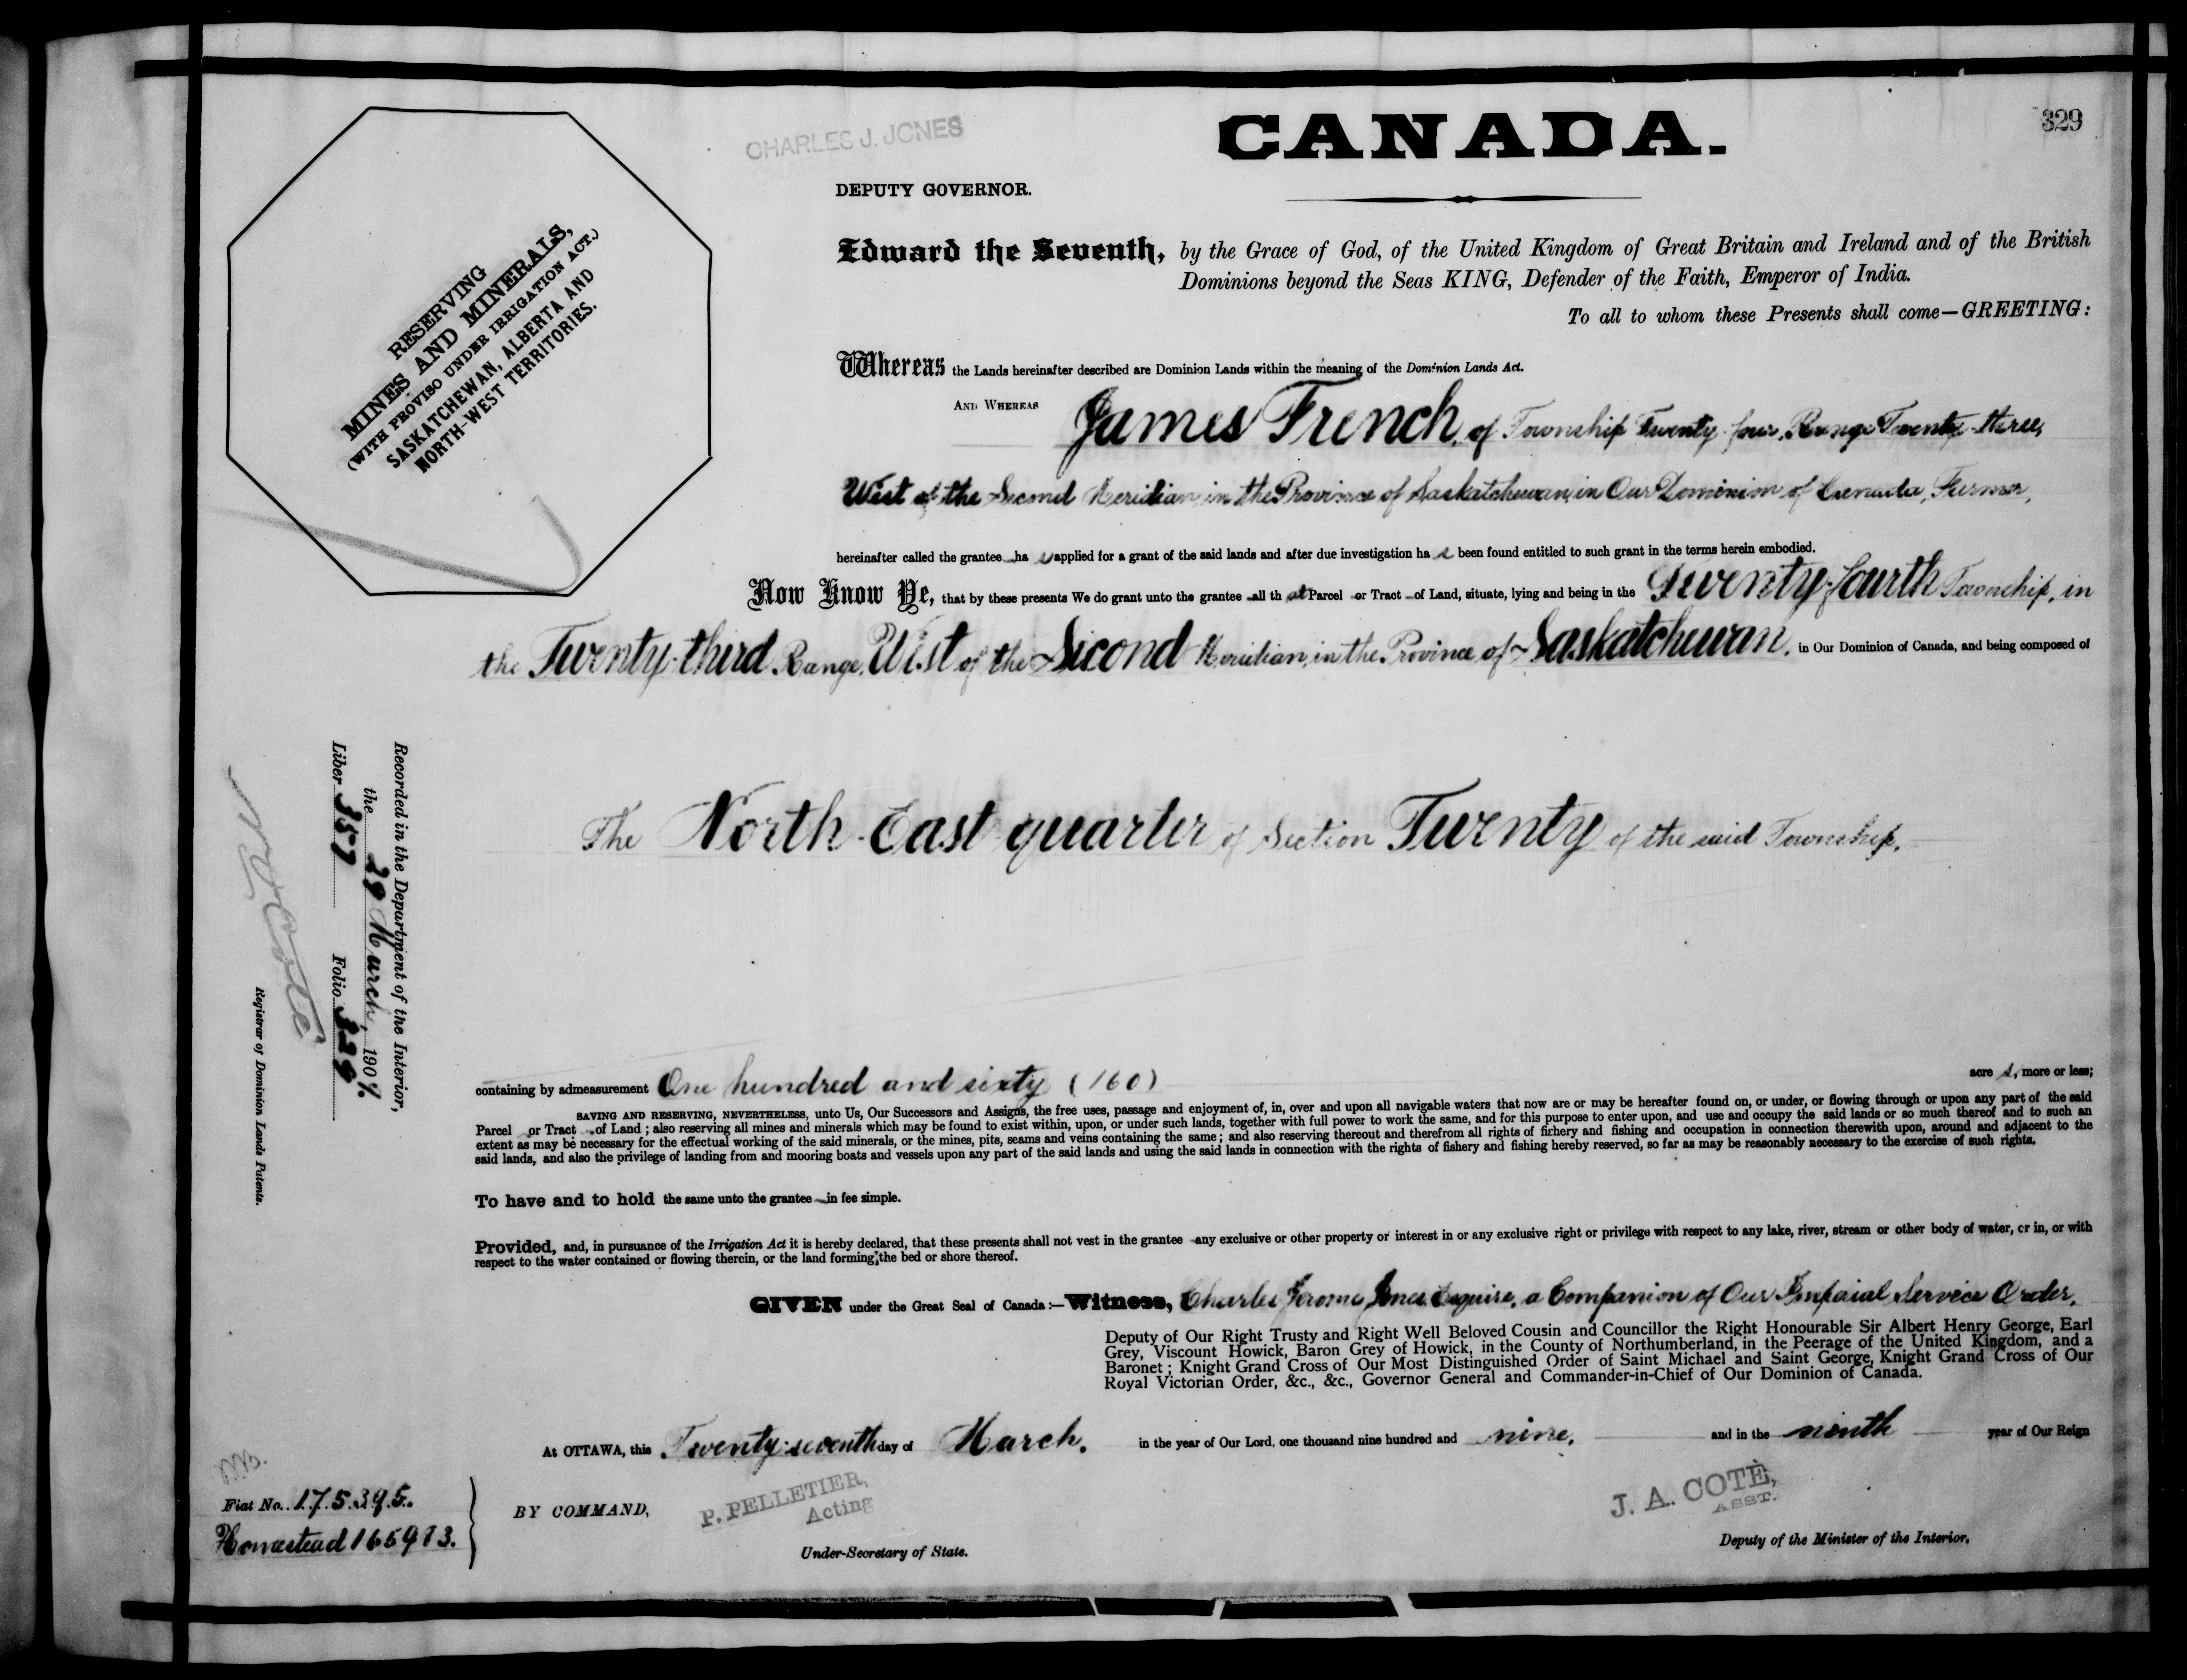 329
CHARLES J. JONES
CANADA.
DEPUTY GOVERNOR.
RESERVING
MINES AND MINERALS,
(WITH PROVISO UNDER IRRIGATION ACT.)
SASKATCHEWAN, ALBERTA AND
NORTH-WEST TERRITORIES.
Edward the Seventh, by the Grace of God, of the United Kingdom of Great Britain and Ireland and of the British
Dominions beyond the Seas KING, Defender of the Faith, Emperor of India.
To all to whom these Presents shall come—GREETING:
Whereas the Lands hereinafter described are Dominion Lands within the meaning of the Dominion Lands Act.
AND WHEREAS James French, of Township Twenty-four, Range Twenty-three,
West of the Second Meridian, in the Province of Saskatchewan, in Our Dominion of Canada, Farmer,
hereinafter called the grantee ha s applied for a grant of the said lands and after due investigation ha s been found entitled to such grant in the terms herein embodied.
Now Know Ye, that by these presents We do grant unto the grantee all th at Parcel or Tract of Land, situate, lying and being in the Twenty-fourth Township, in
the Twenty-third Range, West of the Second Meridian, in the Province of Saskatchewan, in Our Dominion of Canada, and being composed of
The North-East quarter of Section Twenty of the said Township.
containing by admeasurement One hundred and sixty (160) acre s, more or less;
SAVING AND RESERVING, NEVERTHELESS, unto Us, Our Successors and Assigns, the free uses, passage and enjoyment of, in, over and upon all navigable waters that now are or may be hereafter found on, or under, or flowing through or upon any part of the said
Parcel or Tract of Land; also reserving all mines and minerals which may be found to exist within, upon, or under such lands, together with full power to work the same, and for this purpose to enter upon, and use and occupy the said lands or so much thereof and to such an
extent as may be necessary for the effectual working of the said minerals, or the mines, pits, seams and veins containing the same; and also reserving thereout and therefrom all rights of fishery and fishing and occupation in connection therewith upon, around and adjacent to the
said lands, and also the privilege of landing from and mooring boats and vessels upon any part of the said lands and using the said lands in connection with the rights of fishery and fishing hereby reserved, so far as may be reasonably necessary to the exercise of such rights.
To have and to hold the same unto the grantee in fee simple.
Provided, and, in pursuance of the Irrigation Act it is hereby declared, that these presents shall not vest in the grantee any exclusive or other property or interest in or any exclusive right or privilege with respect to any lake, river, stream or other body of water, or in, or with
respect to the water contained or flowing therein, or the land forming the bed or shore thereof.
GIVEN under the Great Seal of Canada:—Witness, Charles Jerome Jones, Esquire, a Companion of Our Imperial Service Order,
Deputy of Our Right Trusty and Right Well Beloved Cousin and Councillor the Right Honourable Sir Albert Henry George, Earl
Grey, Viscount Howick, Baron Grey of Howick, in the County of Northumberland, in the Peerage of the United Kingdom, and a
Baronet; Knight Grand Cross of Our Most Distinguished Order of Saint Michael and Saint George, Knight Grand Cross of Our
Royal Victorian Order, &c., &c., Governor General and Commander-in-Chief of Our Dominion of Canada.
At OTTAWA, this Twenty-seventh day of March, in the year of Our Lord, one thousand nine hundred and nine, and in the ninth year of Our Reign
BY COMMAND,
P. PELLETIER,
Acting
Under-Secretary of State.
J. A. COTÈ,
ASST.
Deputy of the Minister of the Interior.
Fiat No. 175395.
Homestead 165913.
Recorded in the Department of the Interior,
the 29 March, 1909.
Liber 357 Folio 329
N. O. Coté
Registrar of Dominion Lands Patents.